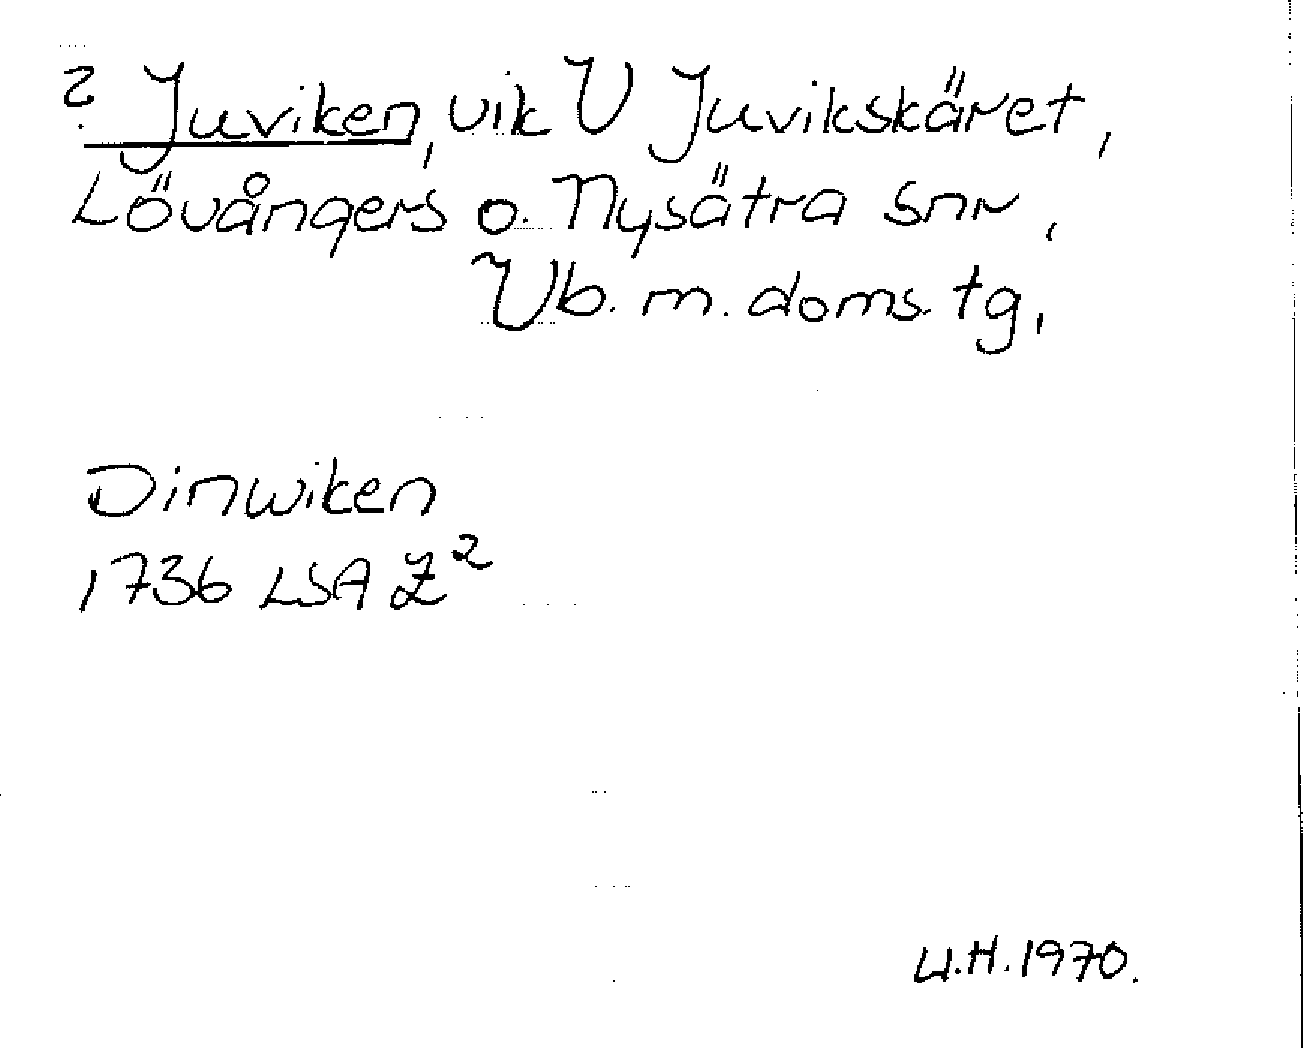 ? Juviken, vik V Juvikskäret,
Lövångers o. Nysätra snr,
Vb. m. doms. tg.
Dinwiken
1736 LSA Z²
U.H. 1970.